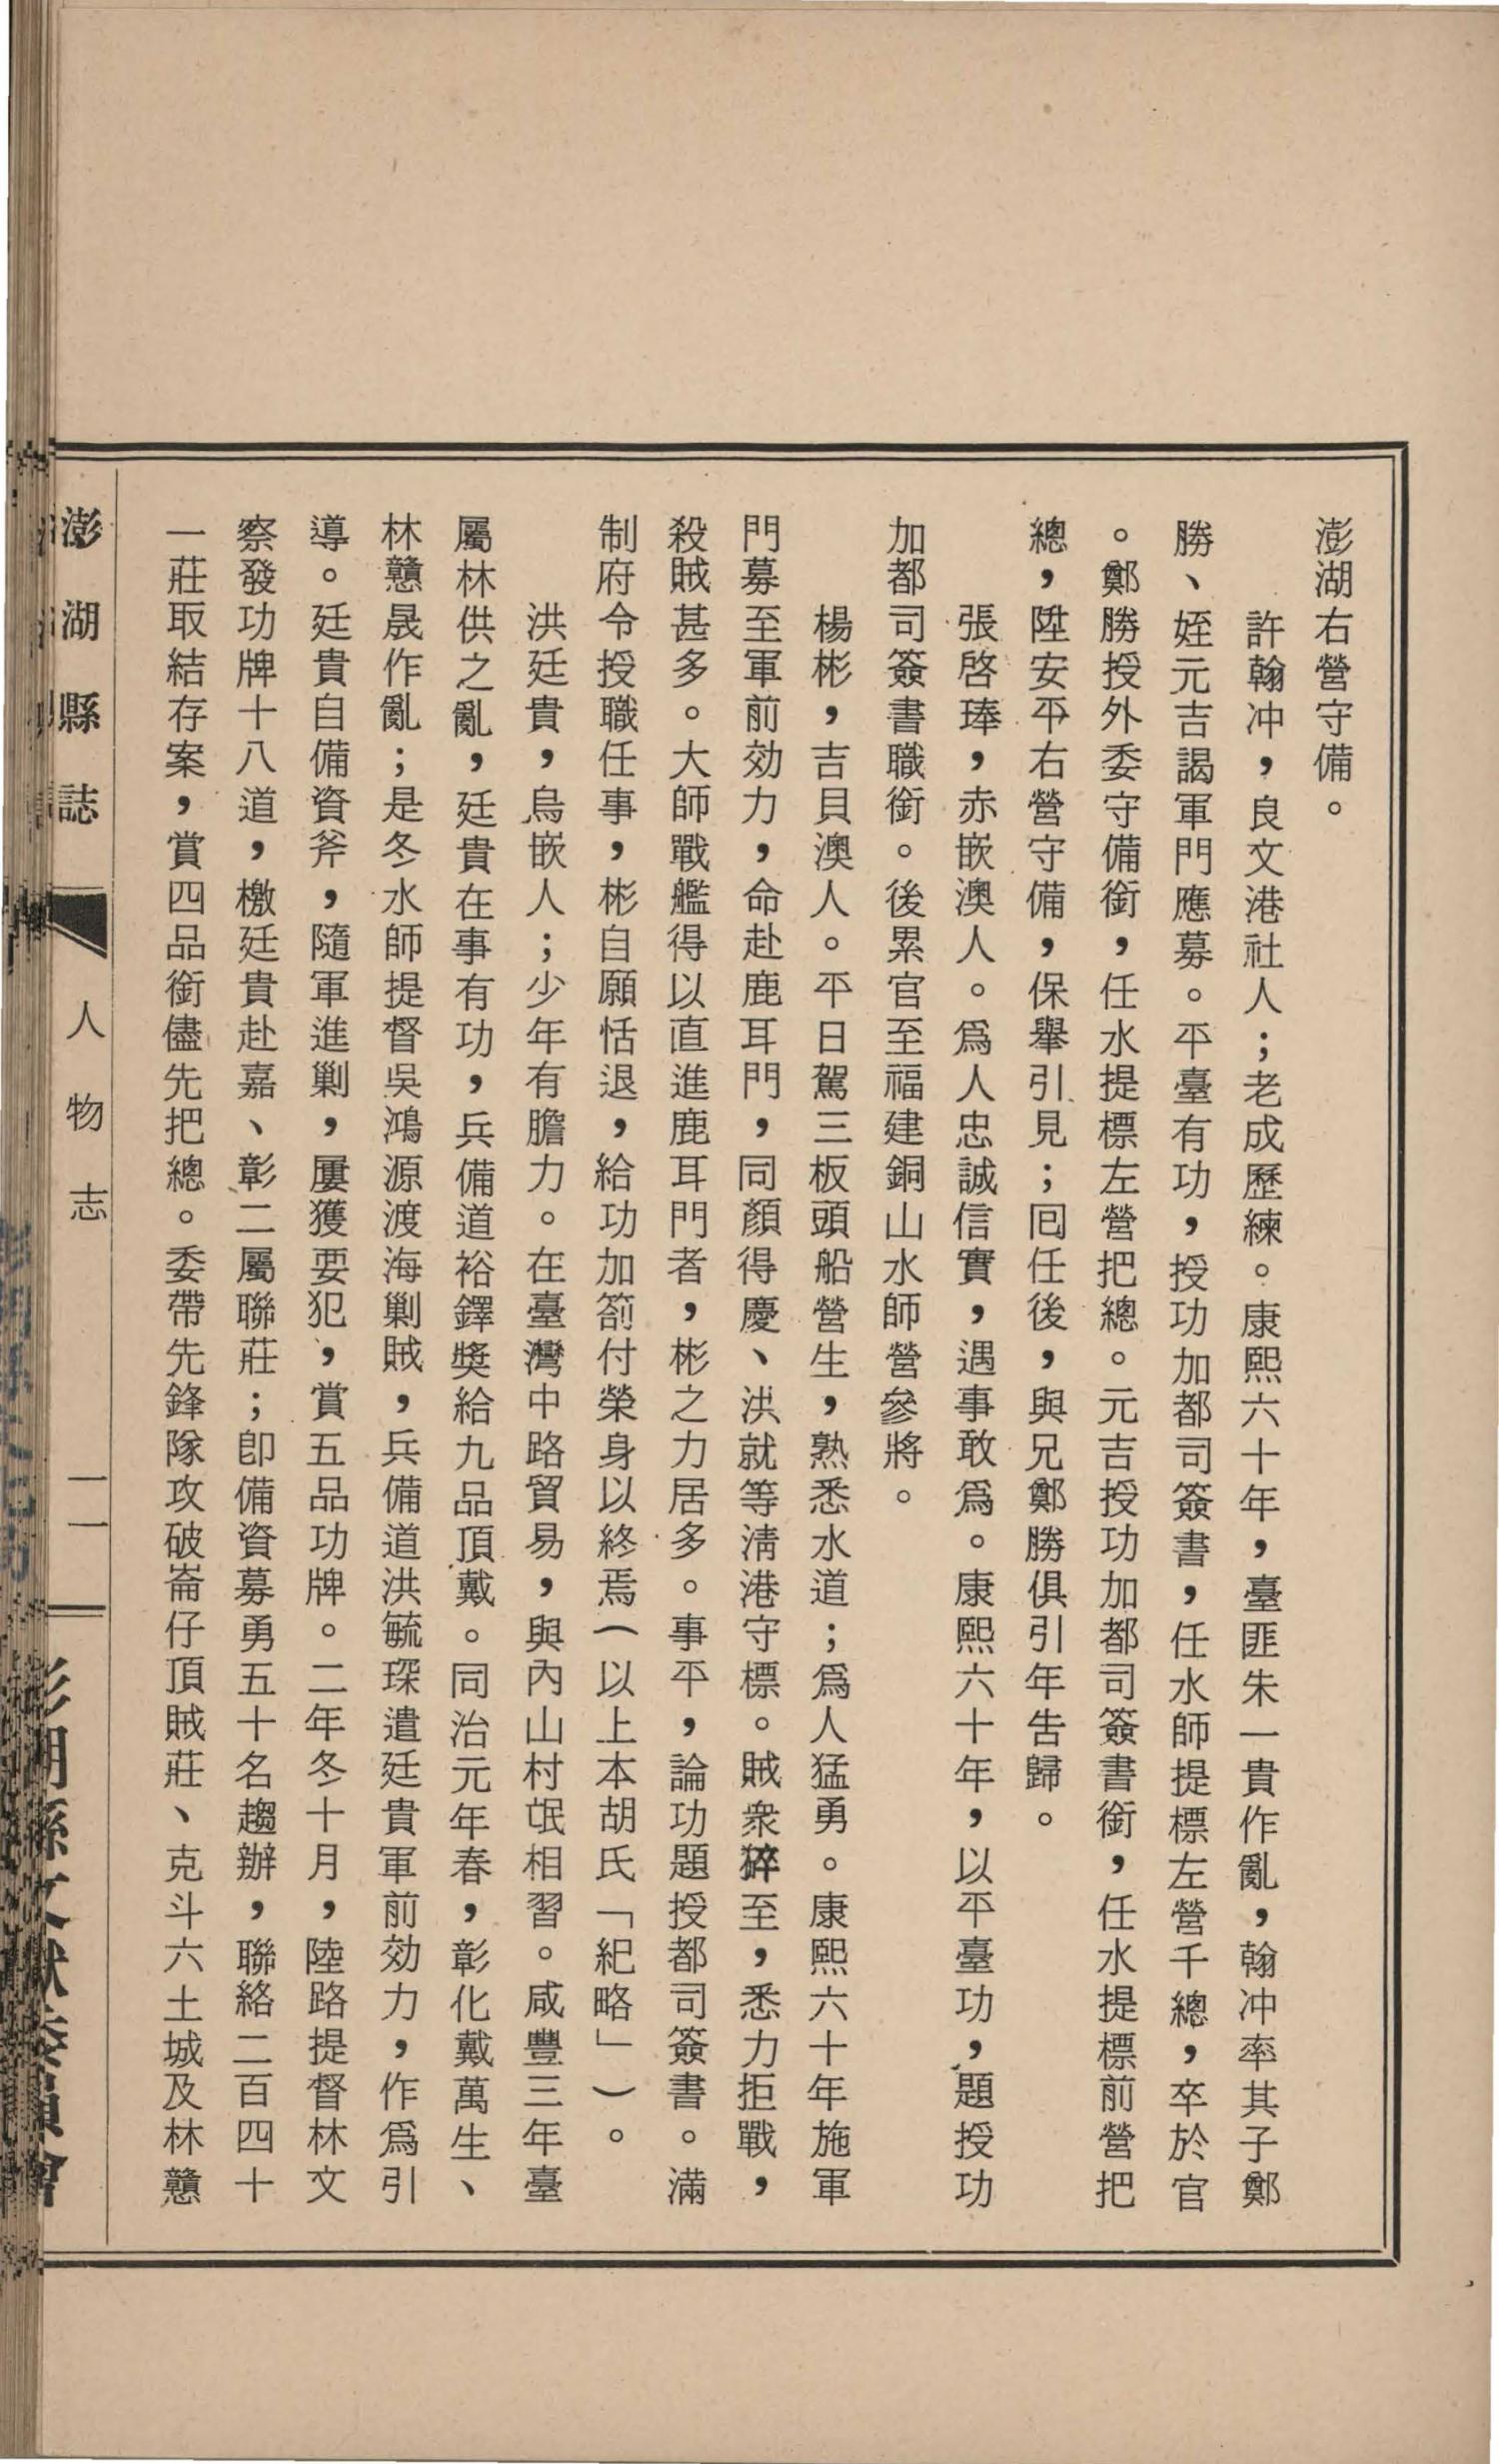 澎湖右營守備。
許翰冲，良文港社人；老成歷練。康熙六十年，臺匪朱一貴作亂，翰冲率其子鄭
勝、姪元吉謁軍門應募。平臺有功，授功加都司簽書，任水師提標左營千總，卒於官
。鄭勝授外委守備銜，任水提標左營把總。元吉授功加都司簽書銜，任水提標前營把
總，陞安平右營守備，保舉引見；囘任後，與兄鄭勝俱引年告歸。
張啓琫，赤嵌澳人。爲人忠誠信實，遇事敢爲。康熙六十年，以平臺功，題授功
加都司簽書職銜。後累官至福建銅山水師營參將。
楊彬，吉貝澳人。平日駕三板頭船營生，熟悉水道；爲人猛勇。康熙六十年施軍
門募至軍前効力，命赴鹿耳門，同顏得慶、洪就等淸港守標。賊衆猝至，悉力拒戰，
殺賊甚多。大師戰艦得以直進鹿耳門者，彬之力居多。事平，論功題授都司簽書。滿
制府令授職任事，彬自願恬退，給功加箚付榮身以終焉（以上本胡氏「紀略」）。
洪廷貴，烏嵌人；少年有膽力。在臺灣中路貿易，與內山村氓相習。咸豐三年臺
屬林供之亂，廷貴在事有功，兵備道裕鐸獎給九品頂戴。同治元年春，彰化戴萬生、
林戇晟作亂；是冬水師提督吳鴻源渡海剿賊，兵備道洪毓琛遣廷貴軍前効力，作爲引
導。廷貴自備資斧，隨軍進剿，屢獲要犯，賞五品功牌。二年冬十月，陸路提督林文
察發功牌十八道，檄廷貴赴嘉、彰二屬聯莊；卽備資募勇五十名趨辦，聯絡二百四十
一莊取結存案，賞四品銜儘先把總。委帶先鋒隊攻破崙仔頂賊莊、克斗六土城及林戇
澎湖縣誌 人物志 一一 澎湖縣文獻委員會